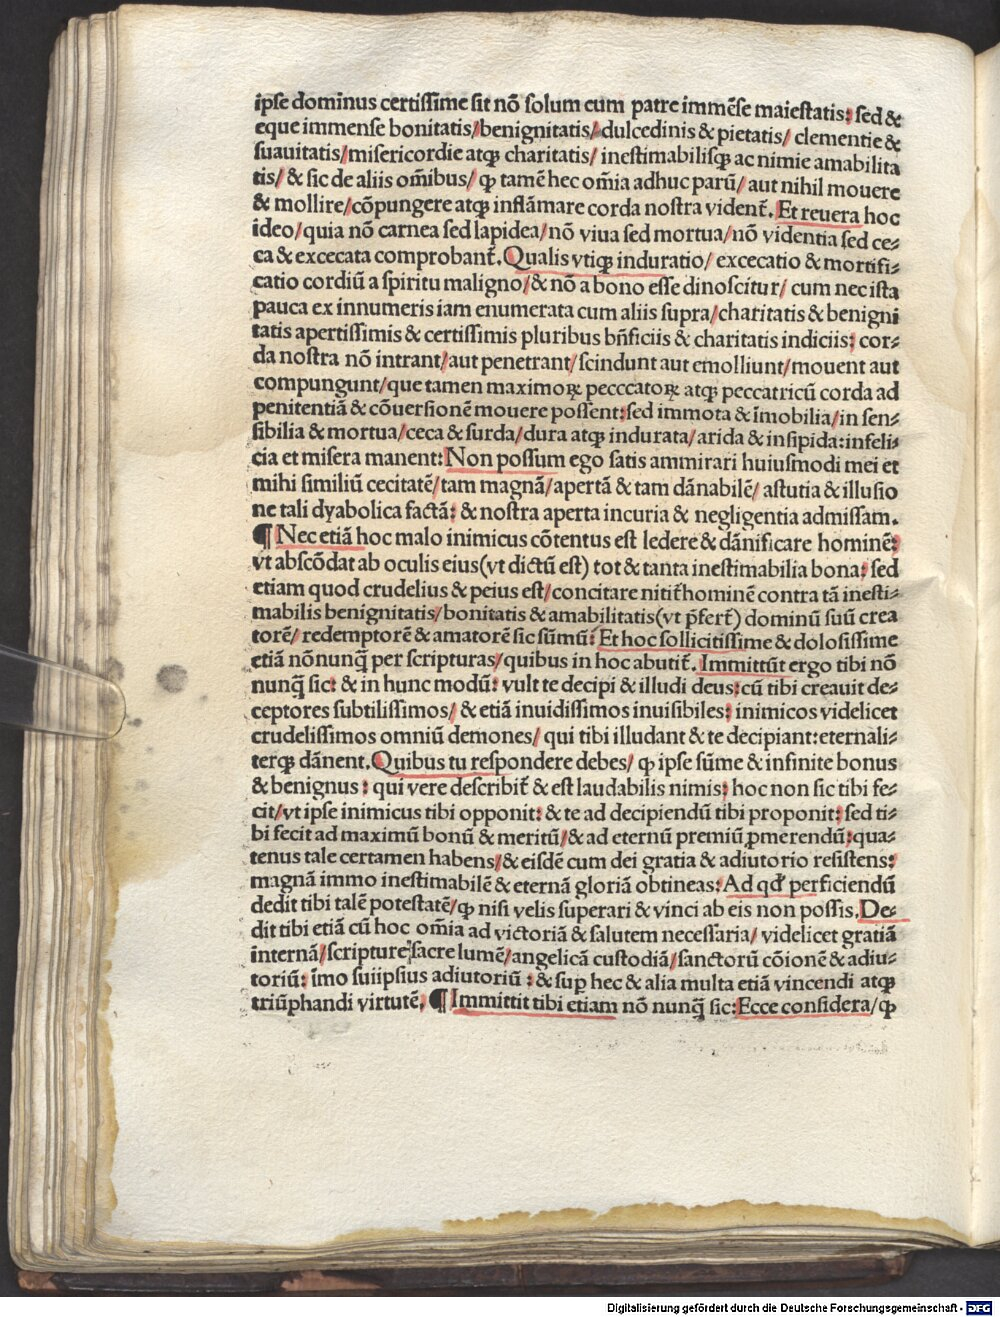 ipſe dominus certiſſime ſit nõ ſolum cum patre immẽſe maieſtatis: ſed &
eque immenſe bonitatis/benignitatis/dulcedinis & pietatis/ clementie &
ſuauitatis/miſericordie atqꝫ charitatis/ ineſtimabiliſqꝫ ac nimie amabilita
tis/ & ſic de aliis om̃ibus/ ꝙ tamẽ hec om̃ia adhuc parũ/ aut nihil mouere
& mollire/cõpungere atqꝫ inflãmare corda noſtra vident̃. Et reuera hoc
ideo/quia nõ carnea ſed lapidea/nõ viua ſed mortua/nõ videntia ſed ce⸗
ca & excecata comprobant̃. Qualis vtiqꝫ induratio/ excecatio & mortifi⸗
catio cordiũ a ſpiritu maligno/& nõ a bono eſſe dinoſcitur/ cum nec iſta
pauca ex innumeris iam enumerata cum aliis ſupra/charitatis & benigni
tatis apertiſſimis & certiſſimis pluribus bñficiis & charitatis indiciis: cor⸗
da noſtra nõ intrant/aut penetrant/ſcindunt aut emolliunt/mouent aut
compungunt/que tamen maximoꝝ pecccatoꝝ atqꝫ peccatricũ corda ad
penitentiã & cõuerſionẽ mouere poſſent: ſed immota & ĩmobilia/in ſen⸗
ſibilia & mortua/ceca & ſurda/dura atqꝫ indurata/arida & inſipida: infeli⸗
cia et miſera manent: Non poſſum ego ſatis ammirari huiuſmodi mei et
mihi ſimiliũ cecitatẽ/tam magnã/apertã & tam dãnabilẽ/ aſtutia & illuſio
ne tali dyabolica factã: & noſtra aperta incuria & negligentia admiſſam.
¶ Nec etiã hoc malo inimicus cõtentus eſt ledere & dãnificare hominẽ:
vt abſcõdat ab oculis eius(vt dictũ eſt) tot & tanta ineſtimabilia bona: ſed
etiam quod crudelius & peius eſt/concitare nitit̃ hominẽ contra tã ineſti⸗
mabilis benignitatis/bonitatis & amabilitatis(vt p̃fert̃) dominũ ſuũ crea
torẽ/ redemptorẽ & amatorẽ ſic ſũmũ: Et hoc ſollicitiſſime & doloſiſſime
etiã nõnunq̃ per ſcripturas/quibus in hoc abutit̃. Immittũt ergo tibi nõ
nunq̃ ſic: & in hunc modũ: vult te decipi & illudi deus: cũ tibi creauit de⸗
ceptores ſubtiliſſimos/ & etiã inuidiſſimos inuiſibiles: inimicos videlicet
crudeliſſimos omniũ demones/ qui tibi illudant & te decipiant: eternali⸗
terqꝫ dãnent. Quibus tu reſpondere debes/ ꝙ ipſe ſũme & infinite bonus
& benignus : qui vere deſcribit̃ & eſt laudabilis nimis: hoc non ſic tibi fe⸗
cit/vt ipſe inimicus tibi opponit: & te ad decipiendũ tibi proponit: ſed ti⸗
bi fecit ad maximũ bonũ & meritũ/& ad eternũ premiũ ꝓmerendũ: qua⸗
tenus tale certamen habens/& eiſdẽ cum dei gratia & adiutorio reſiſtens:
magnã immo ineſtimabilẽ & eternã gloriã obtineas: Ad qđ perficiendũ
dedit tibi talẽ poteſtatẽ/ꝙ niſi velis ſuperari & vinci ab eis non poſſis. De⸗
dit tibi etiã cũ hoc om̃ia ad victoriã & ſalutem neceſſaria/ videlicet gratiã
internã/ſcripture ſacre lumẽ/angelicã cuſtodiã/ſanctorũ cõionẽ & adiu⸗
toriũ: ĩmo ſuiipſius adiutoriũ : & ſuꝑ hec & alia multa etiã vincendi atqꝫ
triũphandi virtutẽ. ¶ Immittit tibi etiam nõ nunq̃ ſic: Ecce conſidera/ ꝙ
Digitalisierung gefördert durch die Deutsche Forschungsgemeinschaft - DFG